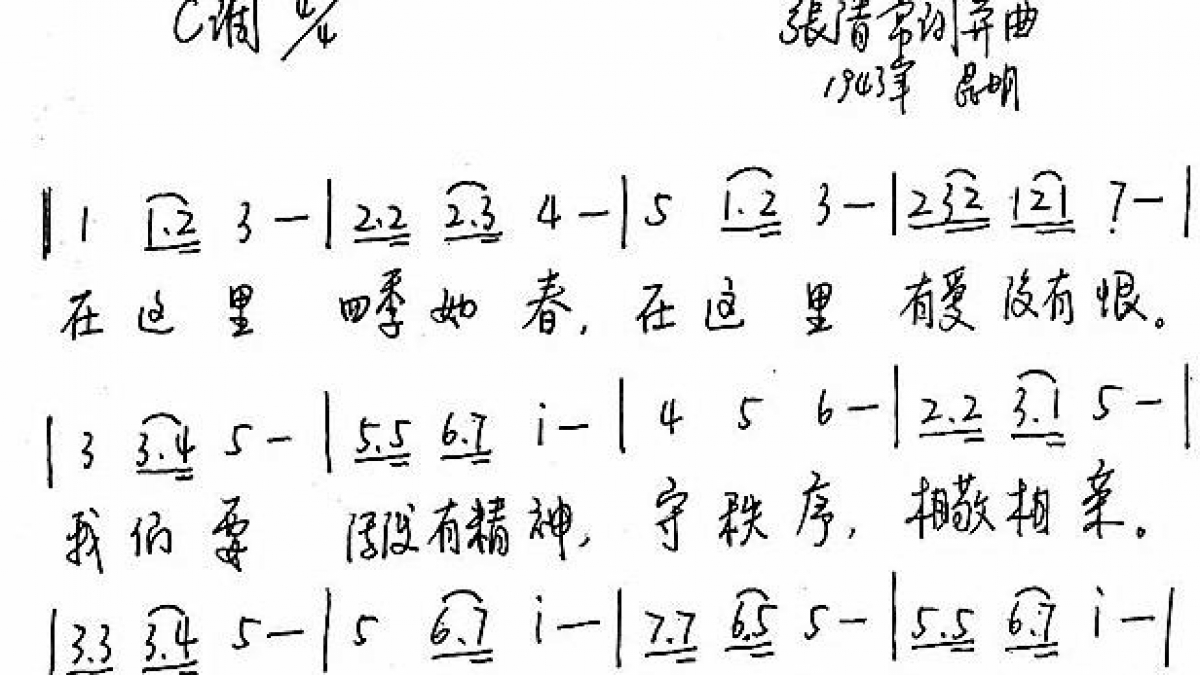 C调 4/4 張清常詞并曲
1943年 昆明
‖ 1 1.2 3 — | 2.2 2.3 4 — | 5 1.2 3 — | 232 121 7 — |
在这里 四季如春, 在这里 有爱没有恨。
| 3 3.4 5 — | 5.5 6.7 i — | 4 5 6 — | 2.2 3.1 5 — |
我们要 有精神, 守秩序, 相敬相亲。
| 3.3 3.4 5 — | 5 6.7 i — | 7.7 6.5 5 — | 5.5 6.7 i — |